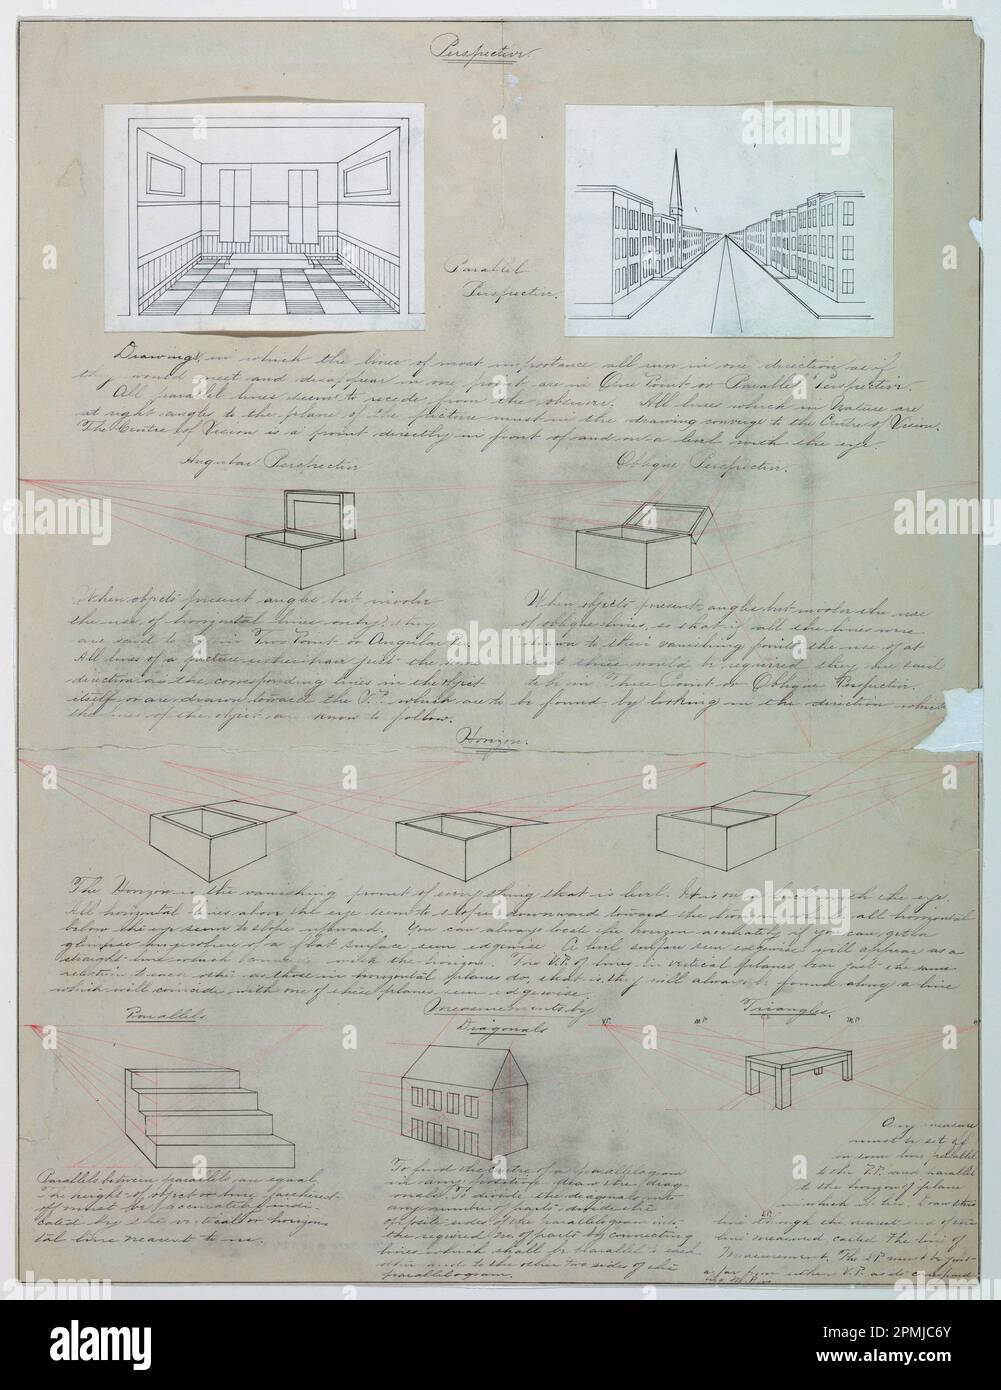 Perspective
Parallel
Perspective.
Drawings in which the lines of most importance all run in one direction as if
they would meet and disappear in one point are in One Point or Parallel Perspective.
All parallel lines seem to recede from the observer. All lines which in Nature are
at right angles to the plane of the picture must in the drawing converge to the Centre of Vision.
The Centre of Vision is a point directly in front of and on a level with the eye.
Angular Perspective
Oblique Perspective.
When objects present angles but involve
the use of horizontal lines only, they
are said to be in Two Point or Angular Per.
All lines of a picture either have just the same
direction as the corresponding lines in the object
itself or are drawn toward the V.P. which are to be found by looking in the direction which
the lines of the object are know to follow.
When objects present angles but involve the use
of oblique lines, so that if all the lines were
drawn to their vanishing points the use of at
least three would be required they are said
to be in Three Point or Oblique Perspective.
Horizon.
The Horizon is the vanishing point of every thing that is level. It is on a level with the eye.
All horizontal lines above the eye seem to slope downward toward the horizon while all horizontal
below the eye seem to slope upward. You can always locate the horizon accurately if you can get a
glimpse anywhere of a flat surface seen edgewise. A level surface seen edgewise will appear as a
straight line which with the horizon. The V.P. of lines in vertical planes bear just the same
relation to each other as those in horizontal planes do, that is, they will always be found along a line
which will coincide with one of these planes seen edgewise.
Parallels
Measurements by
Diagonals
Triangles.
V.P. M.P. M.P.
Parallels between parallels are equal
The height of object or line farthest
off must be accurately indi-
cated by the vertical or horizon
tal line nearest to us.
To find the centre of a parallelogram
in any position draw the diag-
onals. To divide the diagonals into
any number of parts divide the
opposite sides of the parallelogram into
the required No. of parts by connecting
lines which shall be parallel to each
other and to the other two sides of the
parallelogram.
Any measure
must be set off
on some line parallel
to the P.P. and parallel
to the horizon of plane
in which it lies. Draw this
line through the nearest end of
line measured called the line of
Measurement. The M.P. must be just
as far from either V.P. as
alamy
Image ID: 2PMJC6Y
www.alamy.com